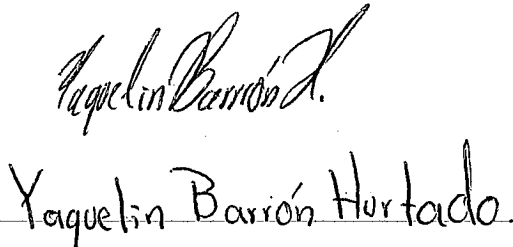 Yaquelin Barrión H.
Yaquelin Barrión Hurtado.